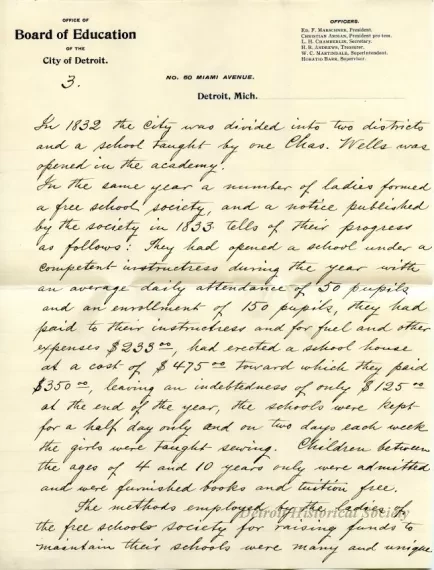 OFFICE OF
Board of Education
OF THE
City of Detroit.
OFFICERS.
ED. F. MARSCHNER, President.
CHRISTIAN ARMAN, President pro tem.
L. H. CHAMBERLIN, Secretary.
H. B. ANDREWS, Treasurer.
W. C. MARTINDALE, Superintendent.
HORATIO BANK, Supervisor.
3.
NO. 50 MIAMI AVENUE.
Detroit, Mich.
In 1832 the city was divided into two districts
and a school taught by one Chas. Wells was
opened in the academy.
In the same year a number of ladies formed
a free school society, and a notice published
by the society in 1833 tells of their progress
as follows: They had opened a school under a
competent instructress during the year with
an average daily attendance of 50 pupils
and an enrollment of 150 pupils, they had
paid to their instructress and for fuel and other
expenses $233 00, had erected a school house
at a cost of $475 00 toward which they paid
$350 00, leaving an indebtedness of only $125 00
at the end of the year, the schools were kept
for a half day only and on two days each week
the girls were taught sewing. Children between
the ages of 4 and 10 years only were admitted
and were furnished books and tuition free.
The methods employed by the ladies of
the free schools society for raising funds to
maintain their schools were many and unique
Detroit Historical Society